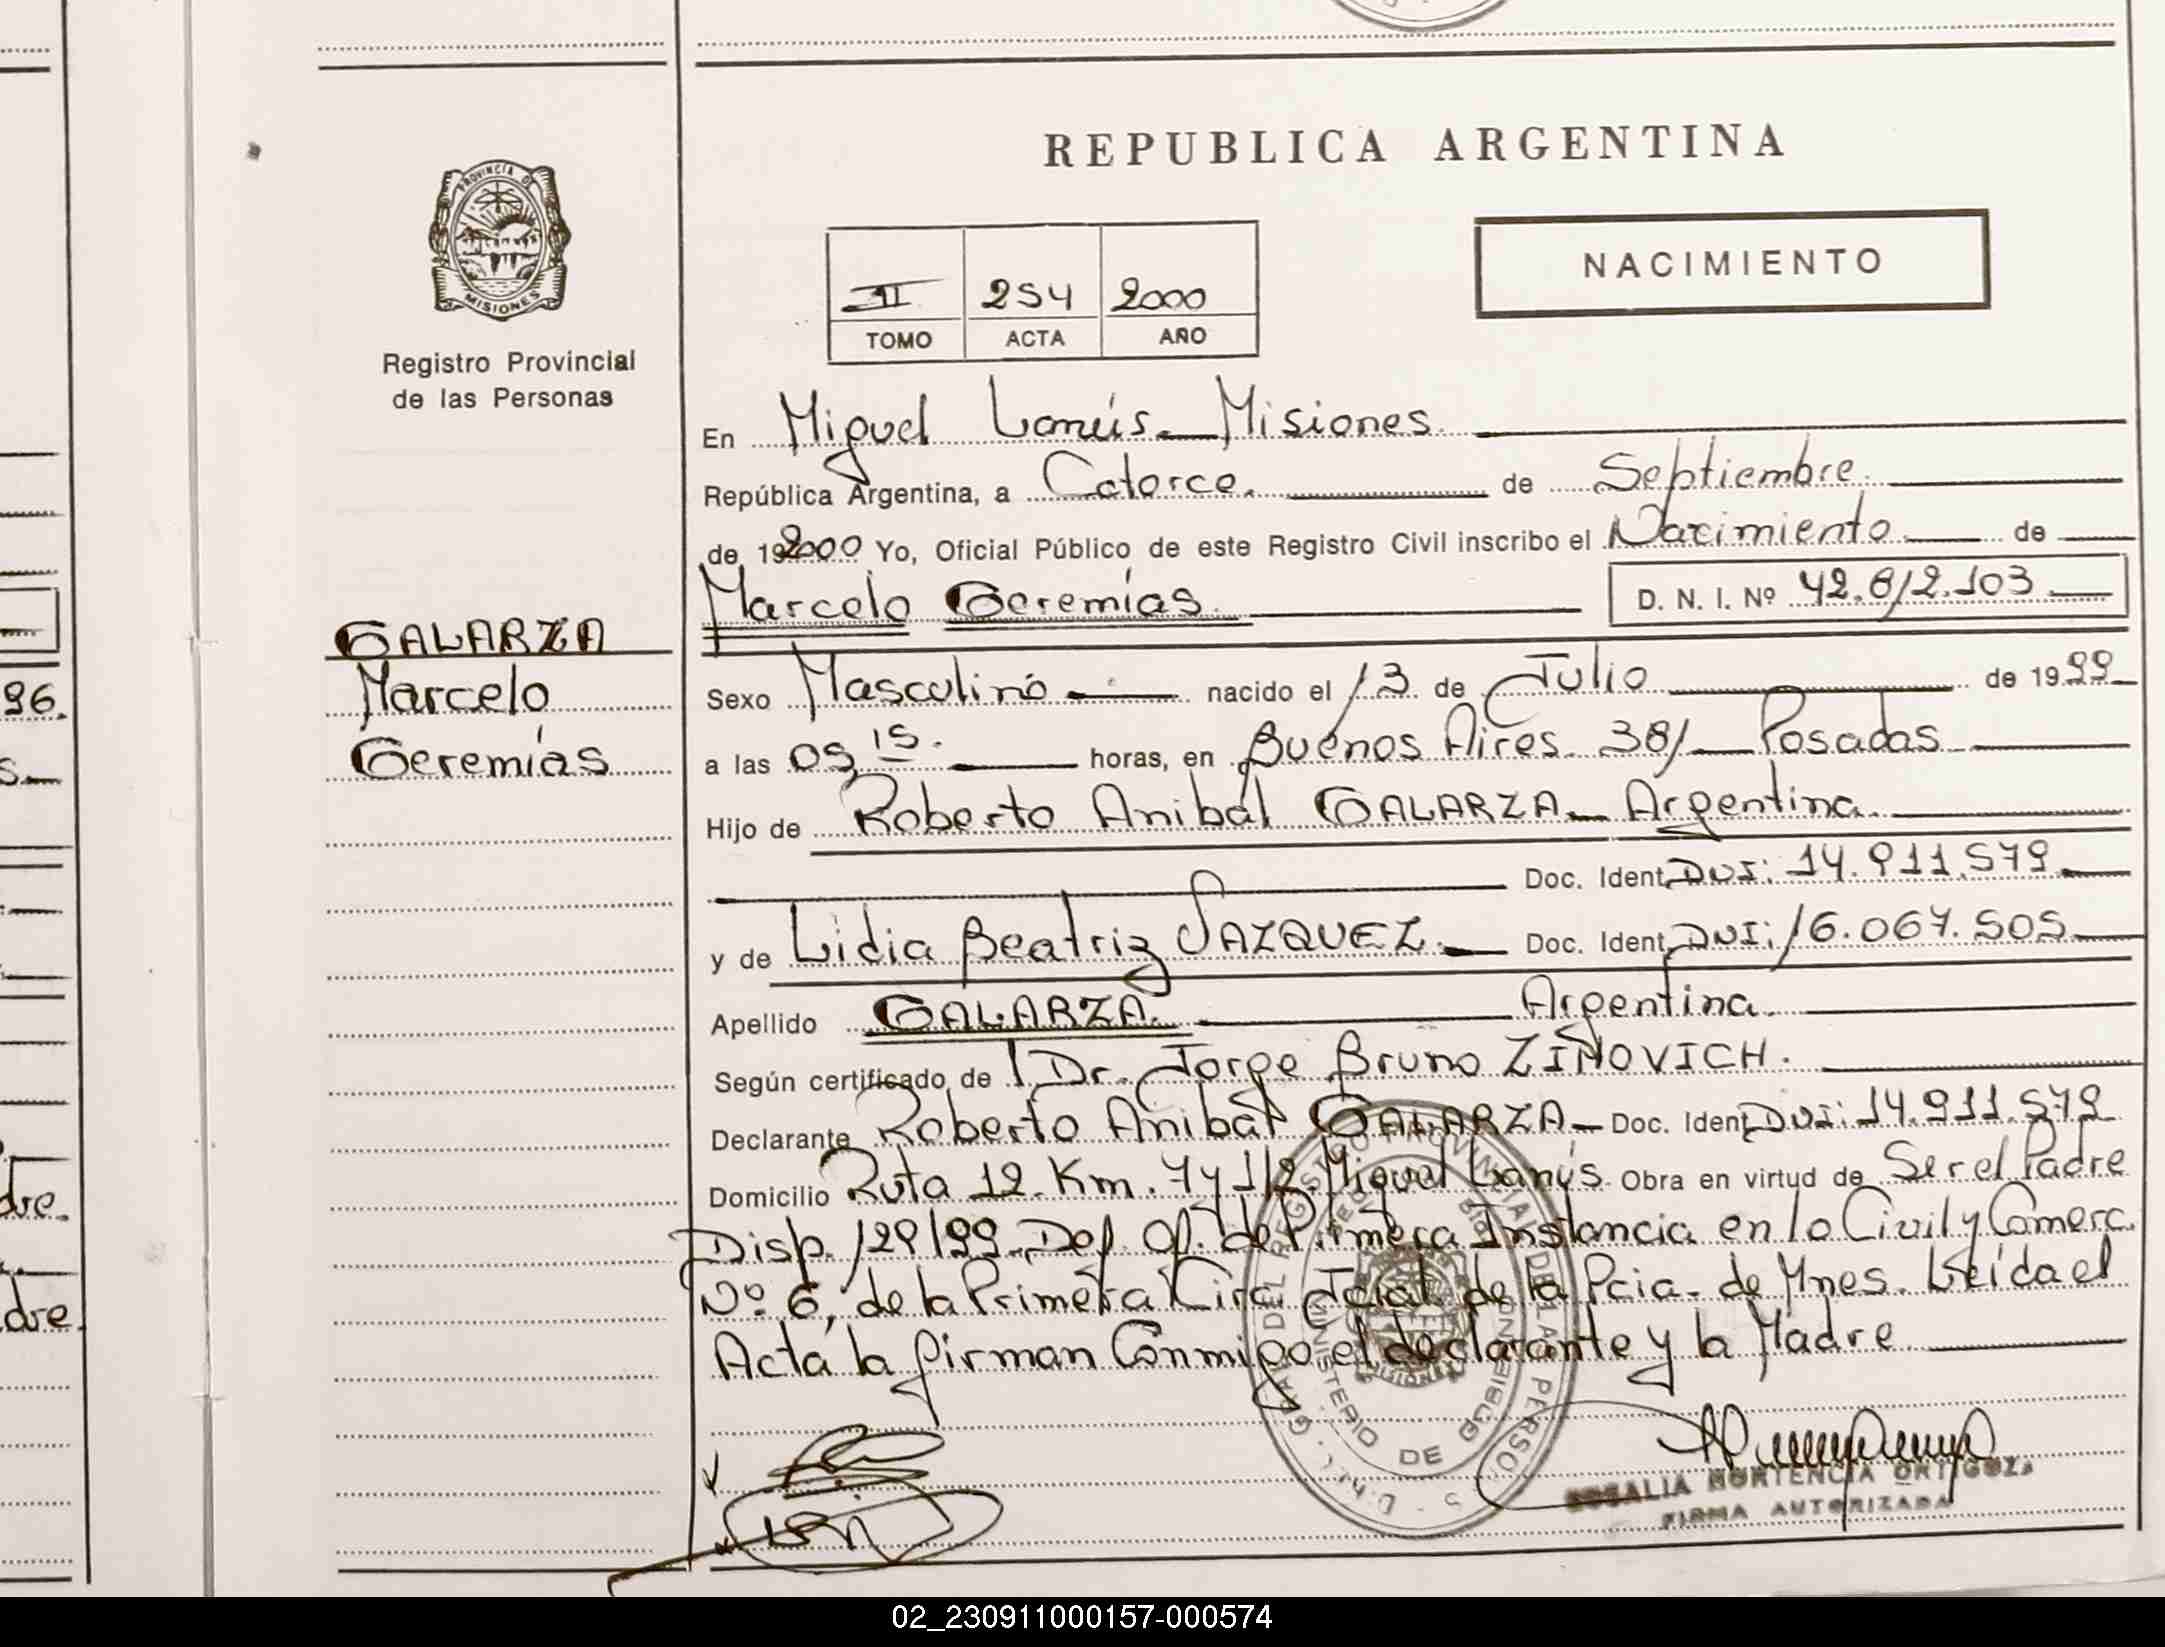 REPUBLICA ARGENTINA
NACIMIENTO
PROVINCIA DE
MISIONES
Registro Provincial
de las Personas
II 254 2000
TOMO ACTA AÑO
En Miguel Lanús - Misiones.
República Argentina, a Catorce. de Septiembre.
de 192000 Yo, Oficial Público de este Registro Civil inscribo el Nacimiento de
Marcelo Geremías. D. N. I. Nº 42.812.103
GALARZA
Marcelo
Geremías
Sexo Masculino nacido el 13 de Julio de 1999
a las 09,15. horas, en Buenos Aires - 381 - Posadas
Hijo de Roberto Anibal GALARZA - Argentina.
Doc. Ident. DNI: 14.911.579
y de Lidia Beatriz VAZQUEZ. Doc. Ident. DNI: 16.067.505
Apellido GALARZA. Argentina.
Según certificado de l Dr. Jorge Bruno ZIÑOVICH.
Declarante Roberto Anibal GALARZA - Doc. Ident. DNI: 14.911.579
Domicilio Ruta 12. Km. 7 y 1/2. Miguel Lanús. Obra en virtud de Ser el Padre
Disp. 129/99 - Def. Of. de Primera Instancia en lo Civil y Comerc.
Nº 6, de la Primera Circ. Jcial. de la Pcia. de Mnes. Leída el
Acta la firman Conmigo el declarante y la Madre
ROSALIA HORTENCIA ORTIGOZA
FIRMA AUTORIZADA
MINISTERIO DE GOBIERNO
96.
dre.
dre.
02_230911000157-000574